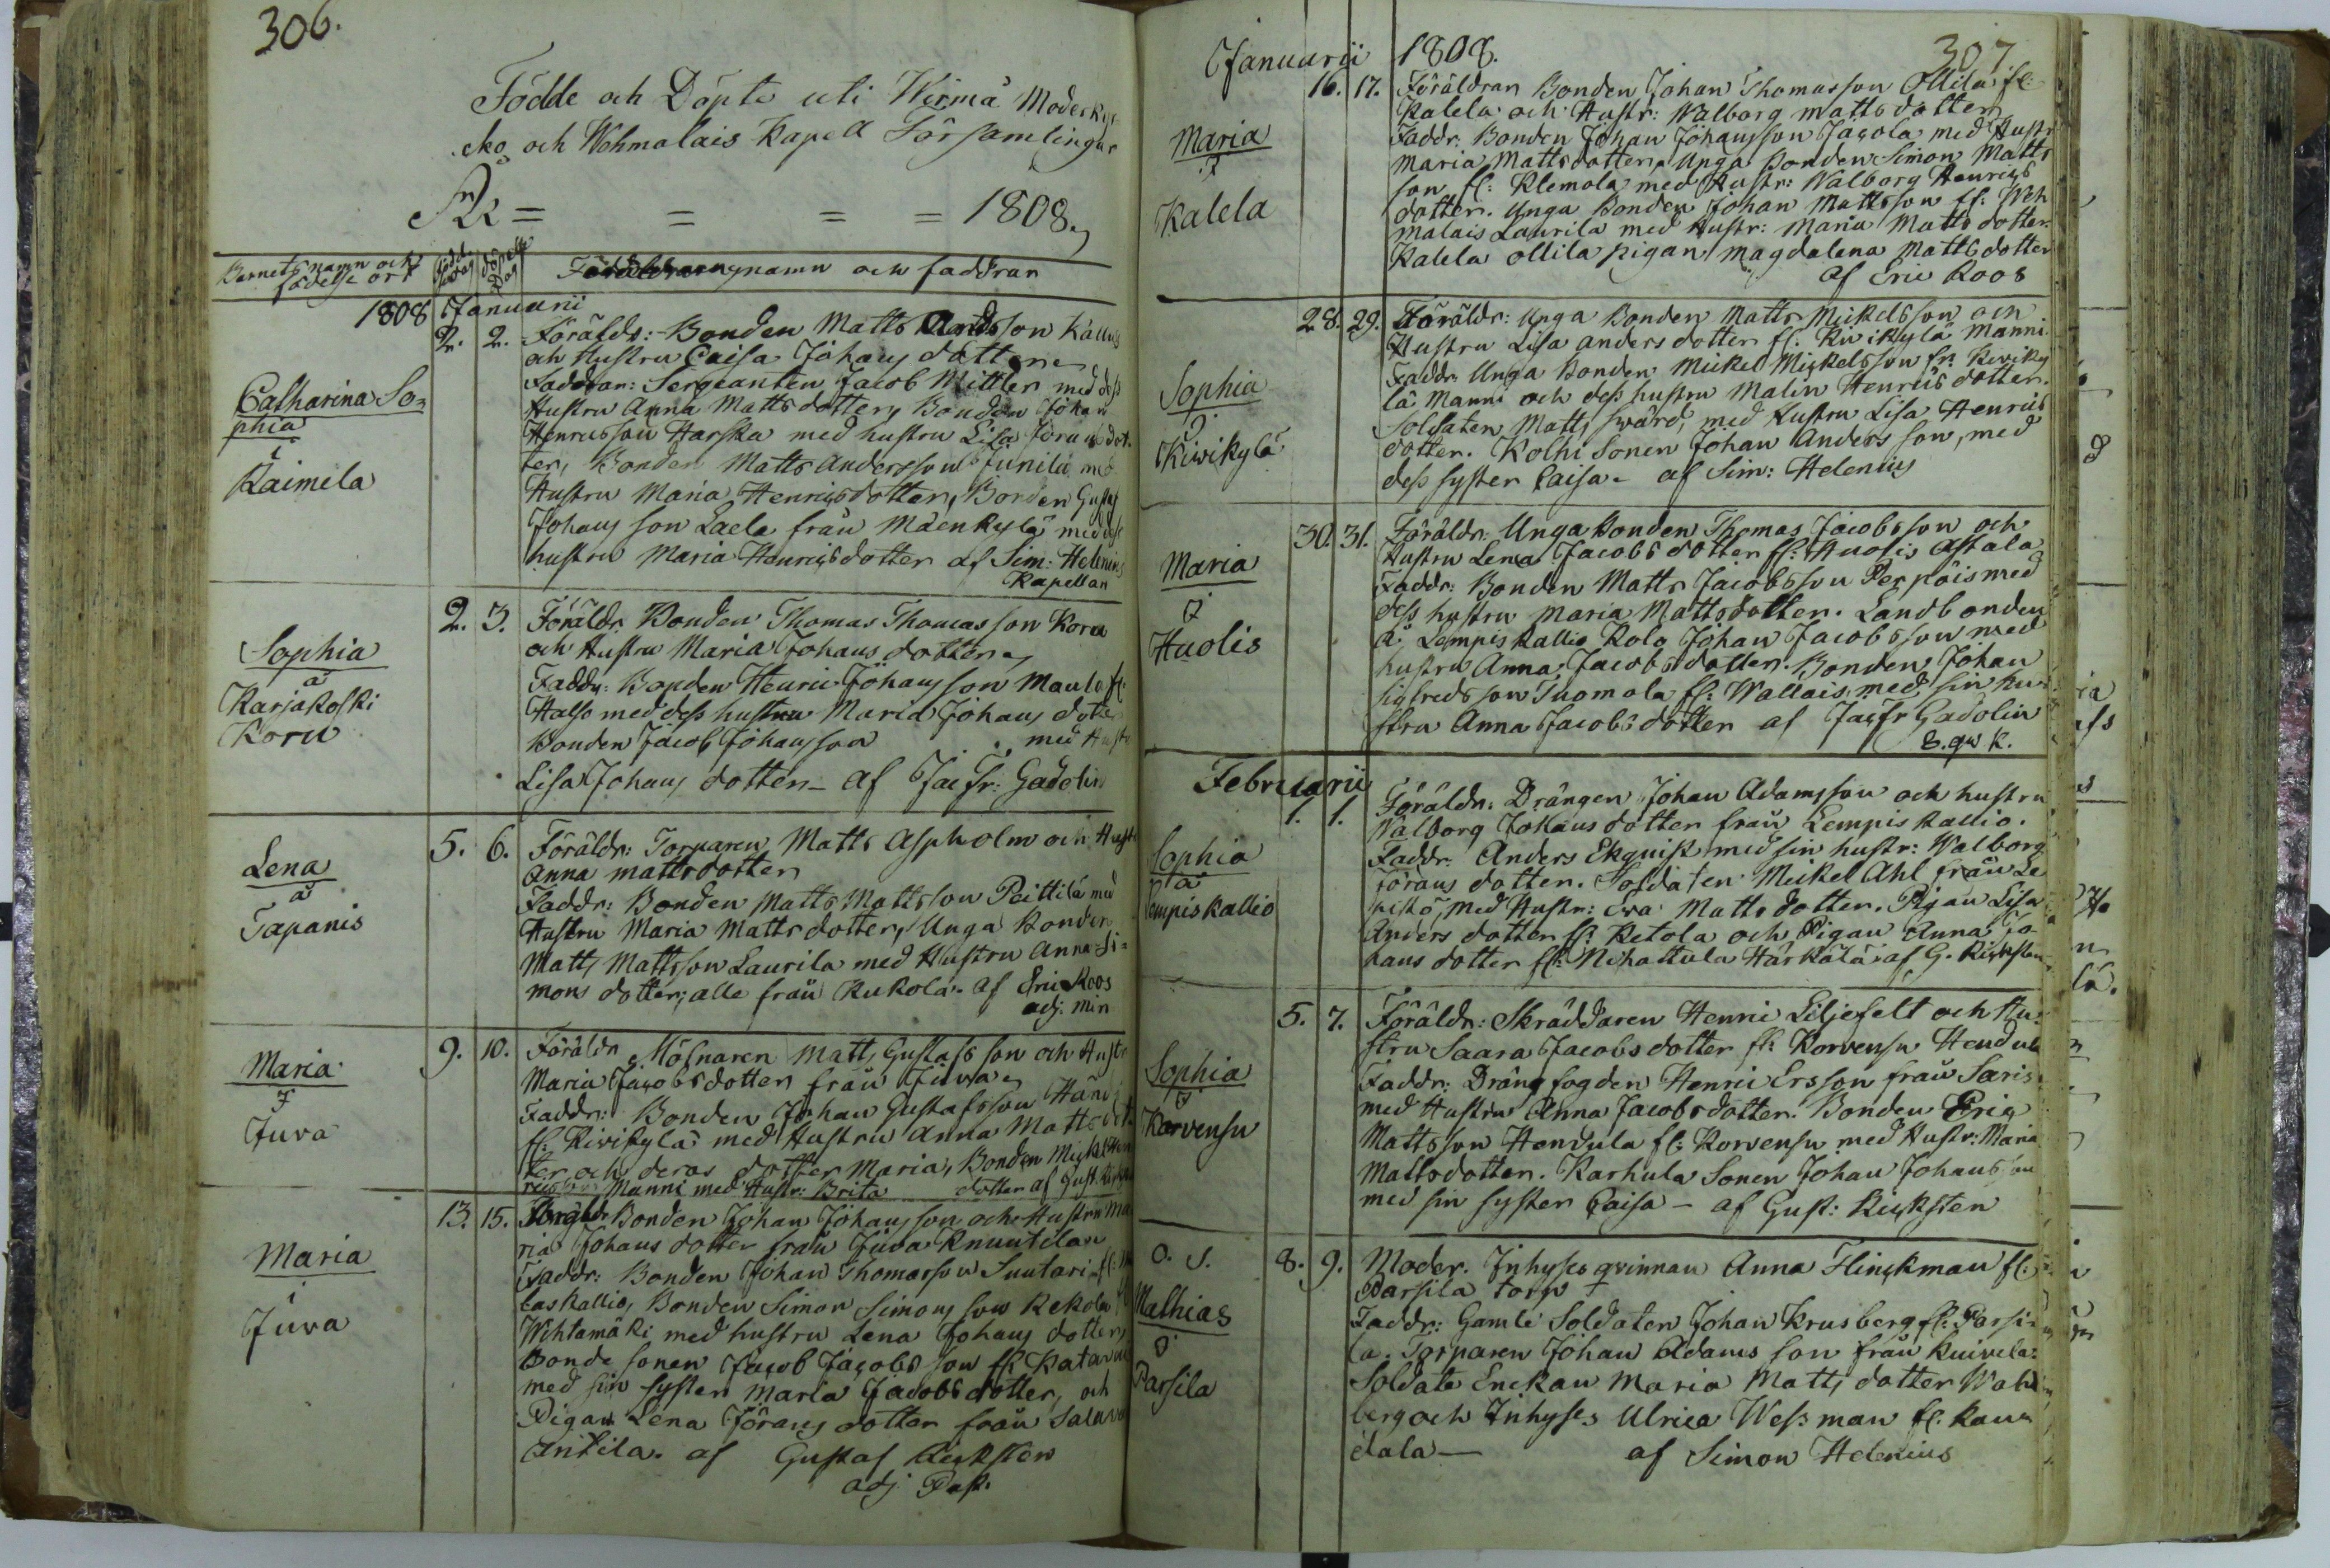 306.
Födde och Döpte uti Wirmå Moderkyr-
cko och Wehmalais Kapell Församlingar
År = = = = 1808.
Barnets namn och födelse ort
född Dag
döpelse Dag
Föräldrarnas namn och faddran
1808 Januarii
Catharina So=
phia
i
Kaimela
2. 2. Föräldr: Bonden Matts Andsson Kallus
och Hustru Caisa Johans dotter
Faddran: Sergeanten Jacob Mittler med dess
Hustru Anna Matts dotter, Bonden Johan
Henricsson Harska med hustru Lisa Jörans dot-
ter, Bonden Matts Andersson Junila med
Hustru Maria Henricsdotter, Bonden Gustaf
Johans son Laela från Mäenkylä med dess
hustru Maria Henricsdotter af Sim: Helenius
Kapellan
Sophia
å
Karjakoski
Koru
2. 3. Föräldr. Bonden Thomas Thomas son Koru
och Hustru Maria Johans dotter
Faddr: Bonden Henric Johans son Maula fr:
Halso med dess hustru Maria Johans dotter
Bonden Jacob Johansson med Hustr
Lisa Johans dotter – af Jac Fr: Gadolin
Lena
å
Tapanis
5. 6. Föräldr: Torparen Matts Aspholm och Hustr
Anna mattsdotter
Faddr: Bonden Matts Mattsson Peittilä med
Hustru Maria Matts dotter, Unga Bonden
Matts Mattsson Laurila med Hustru Anna Si=
mons dotter; alle från Kukola. af Eric Roos
adj: min
Maria
i
Juva
9. 10. Föräldr Mölnaren Matts Gustafs son och Hustr
Maria Jacobsdotter från Juva
Faddr: Bonden Johan Gustafsson
fl: Kivikylä med Hustru Anna Matts dot-
ter och deras dotter Maria, Bonden Mickel Hen
ricsson Manni med Hustr: Brita dotter af Gust.
Maria
i
Juva
13. 15. Föräld. Bonden Johan Johans son och Hustru Ma
ria Johans dotter från Juva Knuutilan
Faddr: Bonden Johan Thomasson Suutari fl:
laskallio, Bonden Simon Simons son Kekola
Wihtamäki med hustru Lena Johans dotter,
Bonde sonen Jacob Jacobs son fl:
med sin syster Maria Jacobs dotter, och
Pigan Lena Jörans dotter från
Antila. af Gustaf Ricksten
adj Past.
307
Januarii 1808.
Maria
i
Kalela
16. 17. Föräldran Bonden Johan Thomasson Ollila fl:
Kalela och Hustr: Walborg matts dotter
Faddr: Bonden Johan Johansson Jacola med Hustr
Maria Mattsdotter, Unga Bonden Simon Matts
son fl: Klemola med Hustr: Walborg Henrics
dotter. Unga Bonden Johan Mattsson fl: Weh
malais Laurila med Hustr: Maria Matts dotter.
Kalela ollila pigan Magdalena Matts dotter
af Eric Roos
Sophia
i
Kiwikylä
28. 29. Föräldr: Unga Bonden Matts Mickelsson och
Hustru Lisa anders dotter fl: Kiwikylä Manni
Faddr Unga Bonden Mickel Mickelsson fr: Kiviky
lä Manni och dess hustru Malin Henrics dotter.
Soldaten Matts Swärd, med Hustru Lisa Henrics
dotter. Kolhi Sonen Johan Anders son, med
dess syster Caisa – af Sim: Helenius
Maria
i
Huolis
30. 31. Föräldr: Unga Bonden Thomas Jacobsson och
Hustru Lena Jacobsdotter fl: Huolis Astala
Faddr: Bonden Matts Jacobsson Perpöis med
dess hustru Maria Mattsdotter. Landbonden
å Lempiskallio Kolo Johan Jacobsson med
hustru Anna Jacobsdotter. Bonden Johan
Sigfreds son Tuomola fl: Wallais, med sin hu-
stru Anna Jacobs dotter af Jac fr Gadolin
Februarii
Sophia
på
Lempiskallio
1. 1. Föräldr: Drängen Johan Adamsson och hustru
Walborg Johans dotter från Lempis kallio.
Faddr: Anders Ekquist med sin hustr: Walborg
Jörans dotter. Soldaten Mickel Ahl från Le
pistö, med Hustr: Eva Matts dotter. Pigan Lisa
Anders dotter fl: Ketola och Pigan Anna Jo-
hans dotter fl: Nihattula Härkälä af G. Ricksten
Sophia
i
Korvensu
5. 7. Föräldr: Skräddaren Henric Liljefelt och Hu-
stru Saara Jacobsdotter fl: Korvensu Hendula
Faddr: Drängfogden Henric Ersson från Saris
med Hustru Anna Jacobsdotter. Bonden Eric
Mattsson Hendula fl: Korvensu med Hustr: Maria
Mattsdotter. Karhula Sonen Johan Johansson
med sin syster Caisa – af Gust: Ricksten
O. S.
Mathias
i
Parsila
8. 9. Moder. Inhyses qvinnan Anna Flinckman fl:
Parsila torp
Faddr: Gamle Soldaten Johan Krusberg fl: Parsi-
la. Torparen Johan Adams son från Kuivela:
Soldate Enckan Maria Matts dotter Wahl
berg och Inhyses Ulrica Wessman fl: Kau=
dala – af Simon Helenius